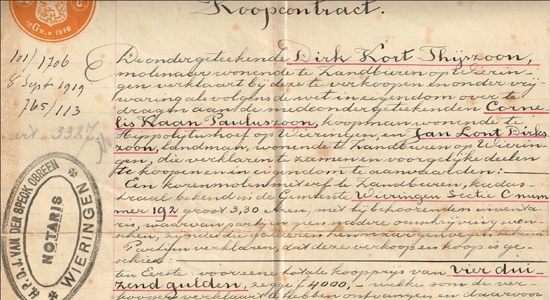 Koopcontract.
1918
101/1706
8 Sept. 1919
765/113
art. 3327
De ondergeteekende Dirk Kort Thijszoon,
molenaar, wonende te Zandburen op Wierin-
gen verklaart bij deze te verkoopen en onder vrij-
waring als volgens de wet in eigendom over te
dragen aan de medeondergeteekenden Corne-
lis Kaan Pauluszoon, koopman, wonende te
Hippolytushoef op Wieringen, en Jan Lont Dirks-
zoon, landman, wonende te Zandburen op Wierin-
gen, die verklaren te zamen en voor gelijke deelen
te koopen en in eigendom te aanvaarden:
Een korenmolen met erf te Zandburen, kadas-
traal bekend in de Gemeente Wieringen Sectie C num-
mer 192 groot 3,30 Aren, met bijbehoorenden inventa-
ris, waarvan partijen geen andere omschrijving wen-
Partijen verklaren, dat deze verkoop en koop is ge-
schied:
ten Eerste: voor eene totale koopprijs van vier dui-
zend gulden, zegge f 4000,- welke som de ver-
kooper verklaart te hebben ontvangen en daarvoor
H.P.D.J. VAN DER SPEDK OBREEN
NOTARIS
WIERINGEN